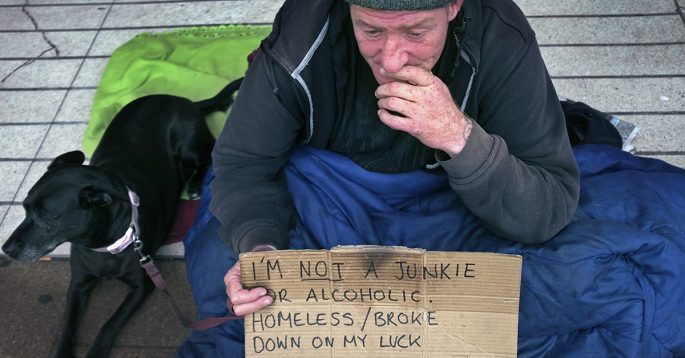 I'M NOT A JUNKIE
OR ALCOHOLIC.
HOMELESS/BROKE
DOWN ON MY LUCK